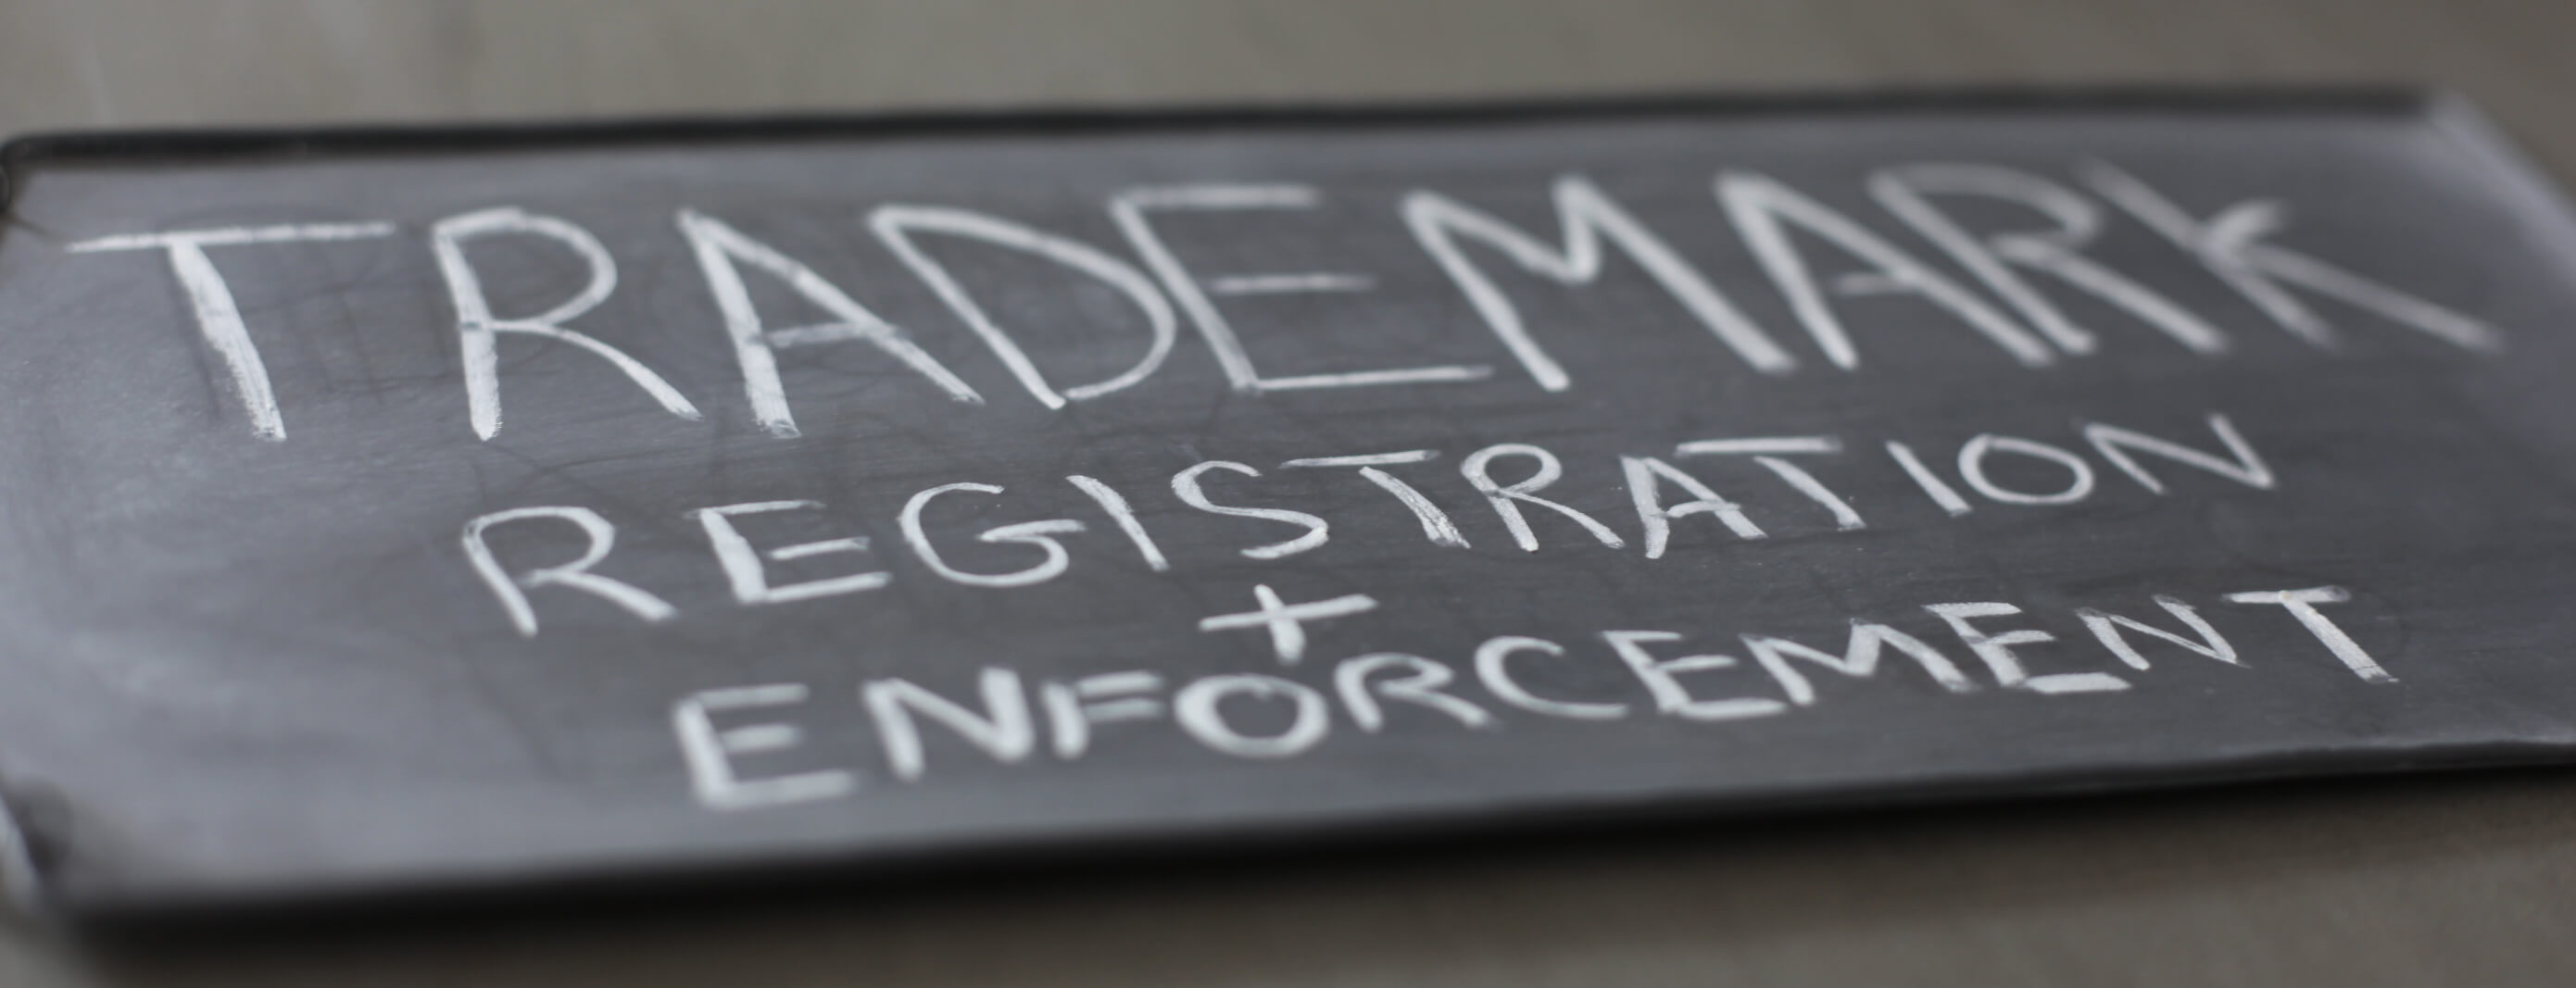 TRADEMARK
REGISTRATION
+
ENFORCEMENT